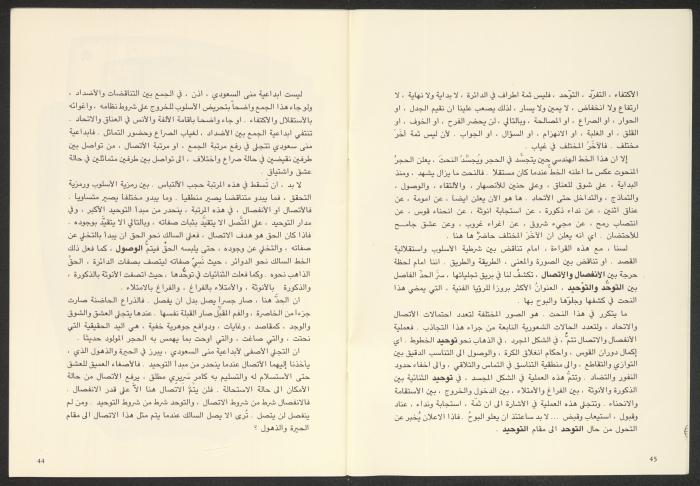 ليست ابداعية منى السعودي ، اذن ، في الجمع بين التناقضات والأضداد ،
ولو جاء هذا الجمع واضحاً بتحريض الأسلوب للخروج على شروط نظامه ، واغوائه
بالأستقلال والأكتفاء . او جاء واضحاً باقامة الألفة والأنس في العناق والاتحاد .
تنتفي ابداعية الجمع بين الأضداد ، لغياب الصراع وحضور التماثل . فابداعية
منى سعودي تتجلى في رفع مرتبة الجمع ، او مرتبة الأتصال ، من تواصل بين
طرفين نقيضين في حالة صراع واختلاف ، الى تواصل بين طرفين متماثلين في حالة
عشق واشتياق .
لا بد ، ان تسقط في هذه المرتبة حجب الألتباس . بين رمزية الأسلوب ورمزية
التحقق ، فما يبدو متناقضا يصير منطقيا . وما يبدو مختلفا يصير متساويا .
فالأتصال او الأنفصال ، في هذه المرتبة ، ينحدر من مبدأ التوحيد الأكبر ، وفي
مدار التوحيد ، على المتّصل الا يتقيّد بثبات صفاته ، وبالتالي الا يتقيّد بوجوده .
فاذا كان الحق هو هدف الاتصال ، فعلى السالك نحو الحق ان يبدأ بالتخلي عن
صفاته ، والتخلي عن وجوده ، حتى يلبسه الحقّ فيتمّ الوصول ، كما فعل ذلك
الخط السالك نحو الدوائر ، حيث نسيَ صفاته ليتصف بصفات الدائرة ، الحقّ
الذاهب نحوه . وكما فعلت الثنائيات في توحُّدها ، حيث اتصفت الأنوثة بالذكورة ،
والذكورة بالأنوثة ، والأمتلاء بالفراغ ، والفراغ بالامتلاء .
ان الحدّ هنا ، صار جسراً يصل بدل ان يفصل . فالذراع الحاضنة صارت
جزءا من الخاصرة ، والفم المقبِّل صار القبلة نفسها . عندها يتجلى العشق والشوق
والوجد ، كمقاصد ، وغايات ، ودوافع جوهرية خفية ، هي اليد الحقيقية التي
نحتت ، والتي صاغت ، والتي اوحت بما يهمس به الحجر المولود حديثا .
ان التجلي الأصفى لأبداعية منى السعودي ، يبرز في الحيرة والذهول الذي ،
يأخذنا إليهما الأتصال عندما ينحدر من مبدأ التوحيد . فالأصغاء العميق للعشق
حتى الاستسلام له والتسليم به كآمر سَريري مطلق ، يرفع الأتصال من حالة
الأمكان الى حالة الاستحالة . فلن يتمّ الأتصال هنا الاّ على قدر الانفصال .
فالانفصال شرط من شروط الاتصال ، والتوحد شرط من شروط التوحيد . ومن لم
ينفصل لن يتصل . تُرى الا يصل السالك عندما يتم مثل هذا الاتصال الى مقام
الحيرة والذهول ؟
44
الأكتفاء ، التفرّد ، التوّحد ، فليس ثمة اطراف في الدائرة ، لا بداية ولا نهاية ، لا
ارتفاع ولا انخفاض ، لا يمين ولا يسار ، لذلك يصعب علينا ان نقيم الجدل ، او
الحوار ، او الصراع ، او المصالحة . وبالتالي ، لن يحضر الفرح ، او الخوف ، او
القلق ، او الغلبة ، او الانهزام ، او السؤال ، او الجواب . لأن ليس ثمة آخر
مختلف . فالآخرُ المختلف في غياب .
إلا ان هذا الخط الهندسي حين يتجسّد في الحجر ويُجسِّدُ النحت . يعلن الحجرُ
المنحوت عكس ما اعلنه الخطُّ عندما كان مستقلا . فالنحت ما يزال يشهد ، ومنذ
البداية ، على شوق للعناق ، وعلى حنين للأنصهار ، والألتقاء ، والوصول ،
والتمازج ، والتداخل حتى الأتحاد . ها هو الآن يعلن ايضا ، عن امومة ، عن
عناق اثنين ، عن نداء ذكورة ، عن استجابة انوثة ، عن انحناء قوس ، عن
انتصاب رمح ، عن مجيء شروق ، عن اغراء غروب ، وعن عشق جامح
للأحتضان . اي انه يعلن ان الآخرَ المختلف حاضرٌ ها هنا .
لسنا ، مع هذه القراءة ، امام تناقض بين شرطية الاسلوب واستقلالية
القصد . او تناقض بين الصورة والمعنى ، الطريقة والطريق . اننا امام لحظة
حرجة بين الأنفصال والأتصال ، تكشفُ لنا في بريق تجلياتها ، سرَّ الحدّ الفاصل
بين التوحُّد والتّوحيد ، العنوانُ الأكثر بروزا للرؤيا الفنية ، التي يمضي هذا
النحت في كشفها وجلوها والبوح بها .
ما يتكرر في هذا النحت . هو الصور المختلفة لتعدد احتمالات الأتصال
والاتحاد ، ولتعدد الحالات الشعورية النابعة من جراء هذا التجاذب . فعملية
الأنفصال والأتصال تتمُّ ، في الشكل المجرد ، في الذهاب نحو توحيد الخطوط . اي
إكمال دوران القوس ، واحكام انغلاق الكرة ، والوصول الى التناسب الدقيق بين
التوازي والتقاطع ، والى منطقية التناسق في التماس والتلاقي ، والى اخفاء حدود
النفور والتضاد . وتتمُّ هذه العملية في الشكل المجسد ، في توحيد الثنائية بين
الذكورة والأنوثة ، بين الفراغ والأمتلاء ، بين الدخول والخروج ، بين الأستقامة
والانحناء . وتتجلى هذه العملية في الأشارة الى ان ثمة ، استجابة ونداء ، عناد
وقبول ، استيعاب وقبض ... لا بد ساعتئذ ان يعلو البوحُ . فاذا الاعلانُ يُخبر عن
التحول من حال التوحد الى مقام التوحيد .
45